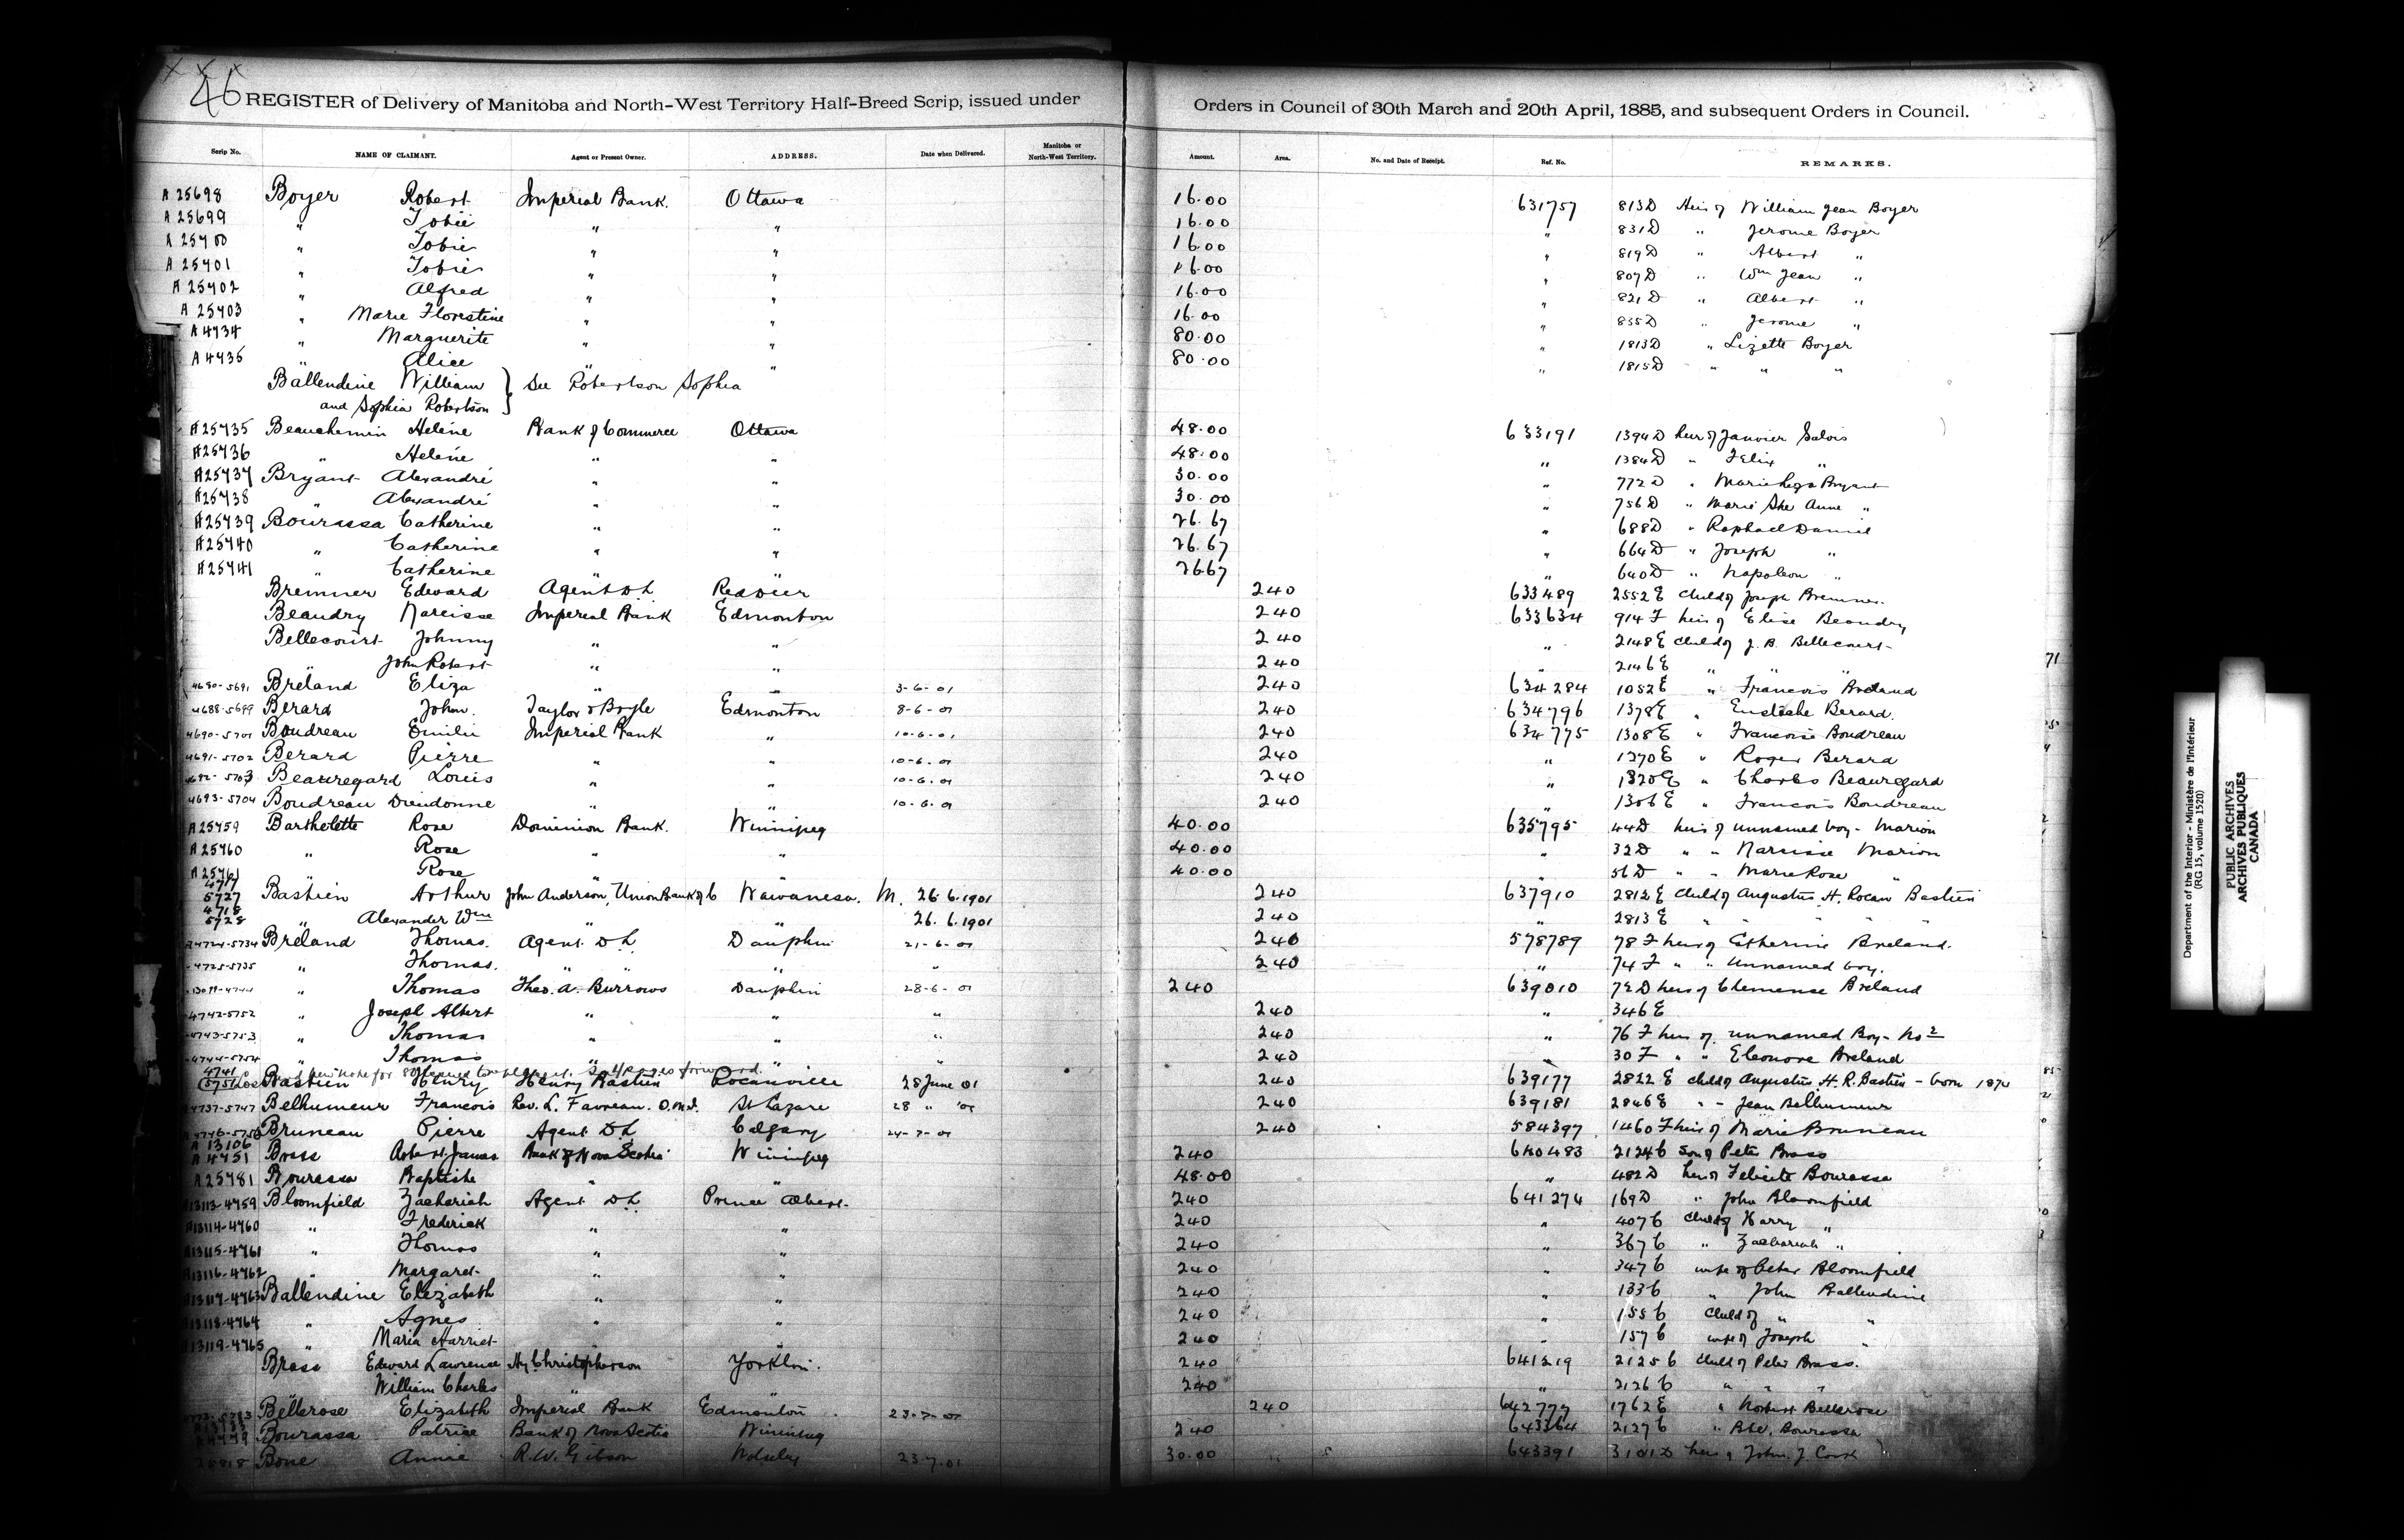 46
REGISTER of Delivery of Manitoba and North-West Territory Half-Breed Scrip, issued under Orders in Council of 30th March and 20th April, 1885, and subsequent Orders in Council.
Scrip No. NAME OF CLAIMANT. Agent or Present Owner. ADDRESS. Date when Delivered. Manitoba or North-West Territory. Amount. Area. No. and Date of Receipt. Ref. No. REMARKS.
A 25698 Boyer Robert Imperial Bank. Ottawa 16.00 631757 813D Heirs of William Jean Boyer
A 25699 " Tobie " " 16.00 " 831D " Jerome Boyer
A 25700 " Tobie " " 16.00 " 819D " Albert "
A 25701 " Tobie " " 16.00 " 807D " Wm Jean "
A 25702 " Alfred " " 16.00 " 821D " Albert "
A 25703 " Marie Florestine " " 16.00 " 835D " Jerome "
A 4734 " Marguerite " " 80.00 " 1813D " Lizette Boyer
A 4735 " Alice " " 80.00 " 1815D " " "
Ballendine William } See Robertson Sophia
and Sophia Robertson
A25735 Beauchemin Helène Bank of Commerce Ottawa 48.00 633191 1394D heir of Janvier
A25736 " Helène " " 48.00 " 1384D " Felix "
A25737 Bryant Alexandré " " 30.00 " 772D " Bryant
A25738 " Alexandré " " 30.00 " 756D " Marie Ste Anne "
A25739 Bourassa Catherine " " 26.67 " 688D " Raphael Daniel
A25740 " Catherine " " 26.67 " 664D " Joseph "
A25741 " Catherine " " 26.67 " 640D " Napoleon "
Bremner Edward Agent D L Red Deer 240 633489 2552E Child of Joseph Bremner.
Beaudry Narcisse Imperial Bank Edmonton 240 633634 914F heir of Elise Beaudry
Bellecourt Johnny " " 240 " 2148E Child of J. B. Bellecourt
" John Robert " " 240 " 2146E " " "
71
4680-5691 Breland Eliza " " 3-6-01 240 634284 1052E " Francois Breland
4688-5699 Berard John. Taylor & Boyle Edmonton 8-6-01 240 634796 1378E " Eustache Berard.
4690-5701 Boudreau Emilie Imperial Bank " 10-6-01 240 634775 1308E " Francois Boudreau
4691-5702 Berard Pierre " " 10-6-01 240 " 1270E " Roger Berard
4692-5703 Beauregard Louis " " 10-6-01 240 " 1320E " Charles Beauregard
4693-5704 Boudreau Dieudonne " " 10-6-01 240 " 1306E " Francois Boudreau
A25759 Bartholette Rose Dominion Bank. Winnipeg 40.00 635795 44D heir of unnamed boy - Marion
A25760 " Rose " " 40.00 " 32D " " Narcisse Marion
A25761 " Rose " " 40.00 " 56D " " Marie Rose "
4717 5727 Bastien Arthur John Anderson, Union Bank of C Wawanesa. M. 26.6.1901 240 637910 2812E Child of Augustus H. Rocan Bastien
4718 5728 " Alexander Wm 26.6.1901 240 " 2813E " " " "
A4724-5734 Breland Thomas. Agent D L Dauphin 21-6-01 240 578789 78F heir of Catherine Breland.
4725-5735 " Thomas. " " " " 240 " 74F " " Unnamed boy.
" Thomas Theo. A. Burrows Dauphin 28-6-01 240 639010 72D heir of Clemense Breland
4742-5752 " Joseph Albert " " " 240 " 346E
4743-5753 " Thomas " " " 240 " 76F heir of unnamed Boy - No 2
4744-5754 " Thomas " " " 240 " 30F " " Eleonore Breland
new note for 80 forward.
4741 5751 Bastien Henry Henry Bastien Rocanville 28 June 01 240 639177 2822E child of Augustus H. R. Bastien - born 1874
4737-5747 Belhumeur Francois Rev. L. Favreau. O.M.I. St Lazare 28 " '01 240 639181 2846E " - Jean Belhumeur
4746-5756 Bruneau Pierre Agent D L Calgary 24-7-01 240 584397 1460F heir of Marie Bruneau
A 13106 A 4751 Brass Robert James Bank of Nova Scotia Winnipeg 240 640483 2124C son of Peter Brass
A25781 Bourassa Baptiste " " 48.00 " 482D heir of Felicite Bourassa
A13113-4759 Bloomfield Zachariah Agent D L Prince Albert 240 641274 169D " John Bloomfield
A13114-4760 " Frederick " " 240 " 407C child of Harry "
A13115-4761 " Thomas " " 240 " 367C " Zachariah "
A13116-4762 " Margaret " " 240 " 347C wife of Peter Bloomfield
A13117-4763 Ballendine Elizabeth " " 240 " 133C " John Ballendine
A13118-4764 " Agnes " " 240 " 155C Child of " "
A13119-4765 " Maria Harriet " " 240 " 157C wife of Joseph "
Brass Edward Lawrence Hy. Christopherson Yorkton. 240 641319 2125C child of Peter Brass.
" William Charles " " 240 " 2126C " " "
4773-5783 Bellerose Elizabeth Imperial Bank Edmonton 23-7-01 240 642777 1762E " Norbert Bellerose
Bourassa Patrice Bank of Nova Scotia Winnipeg 240 643364 2127C " Bourassa
25818 Bone Annie R. W. Gibson Wolseley 23.7.01 30.00 643391 3101D heir of John J. Cook
Department of the Interior - Ministère de l'Intérieur
(RG 15, volume 1520)
PUBLIC ARCHIVES
ARCHIVES PUBLIQUES
CANADA